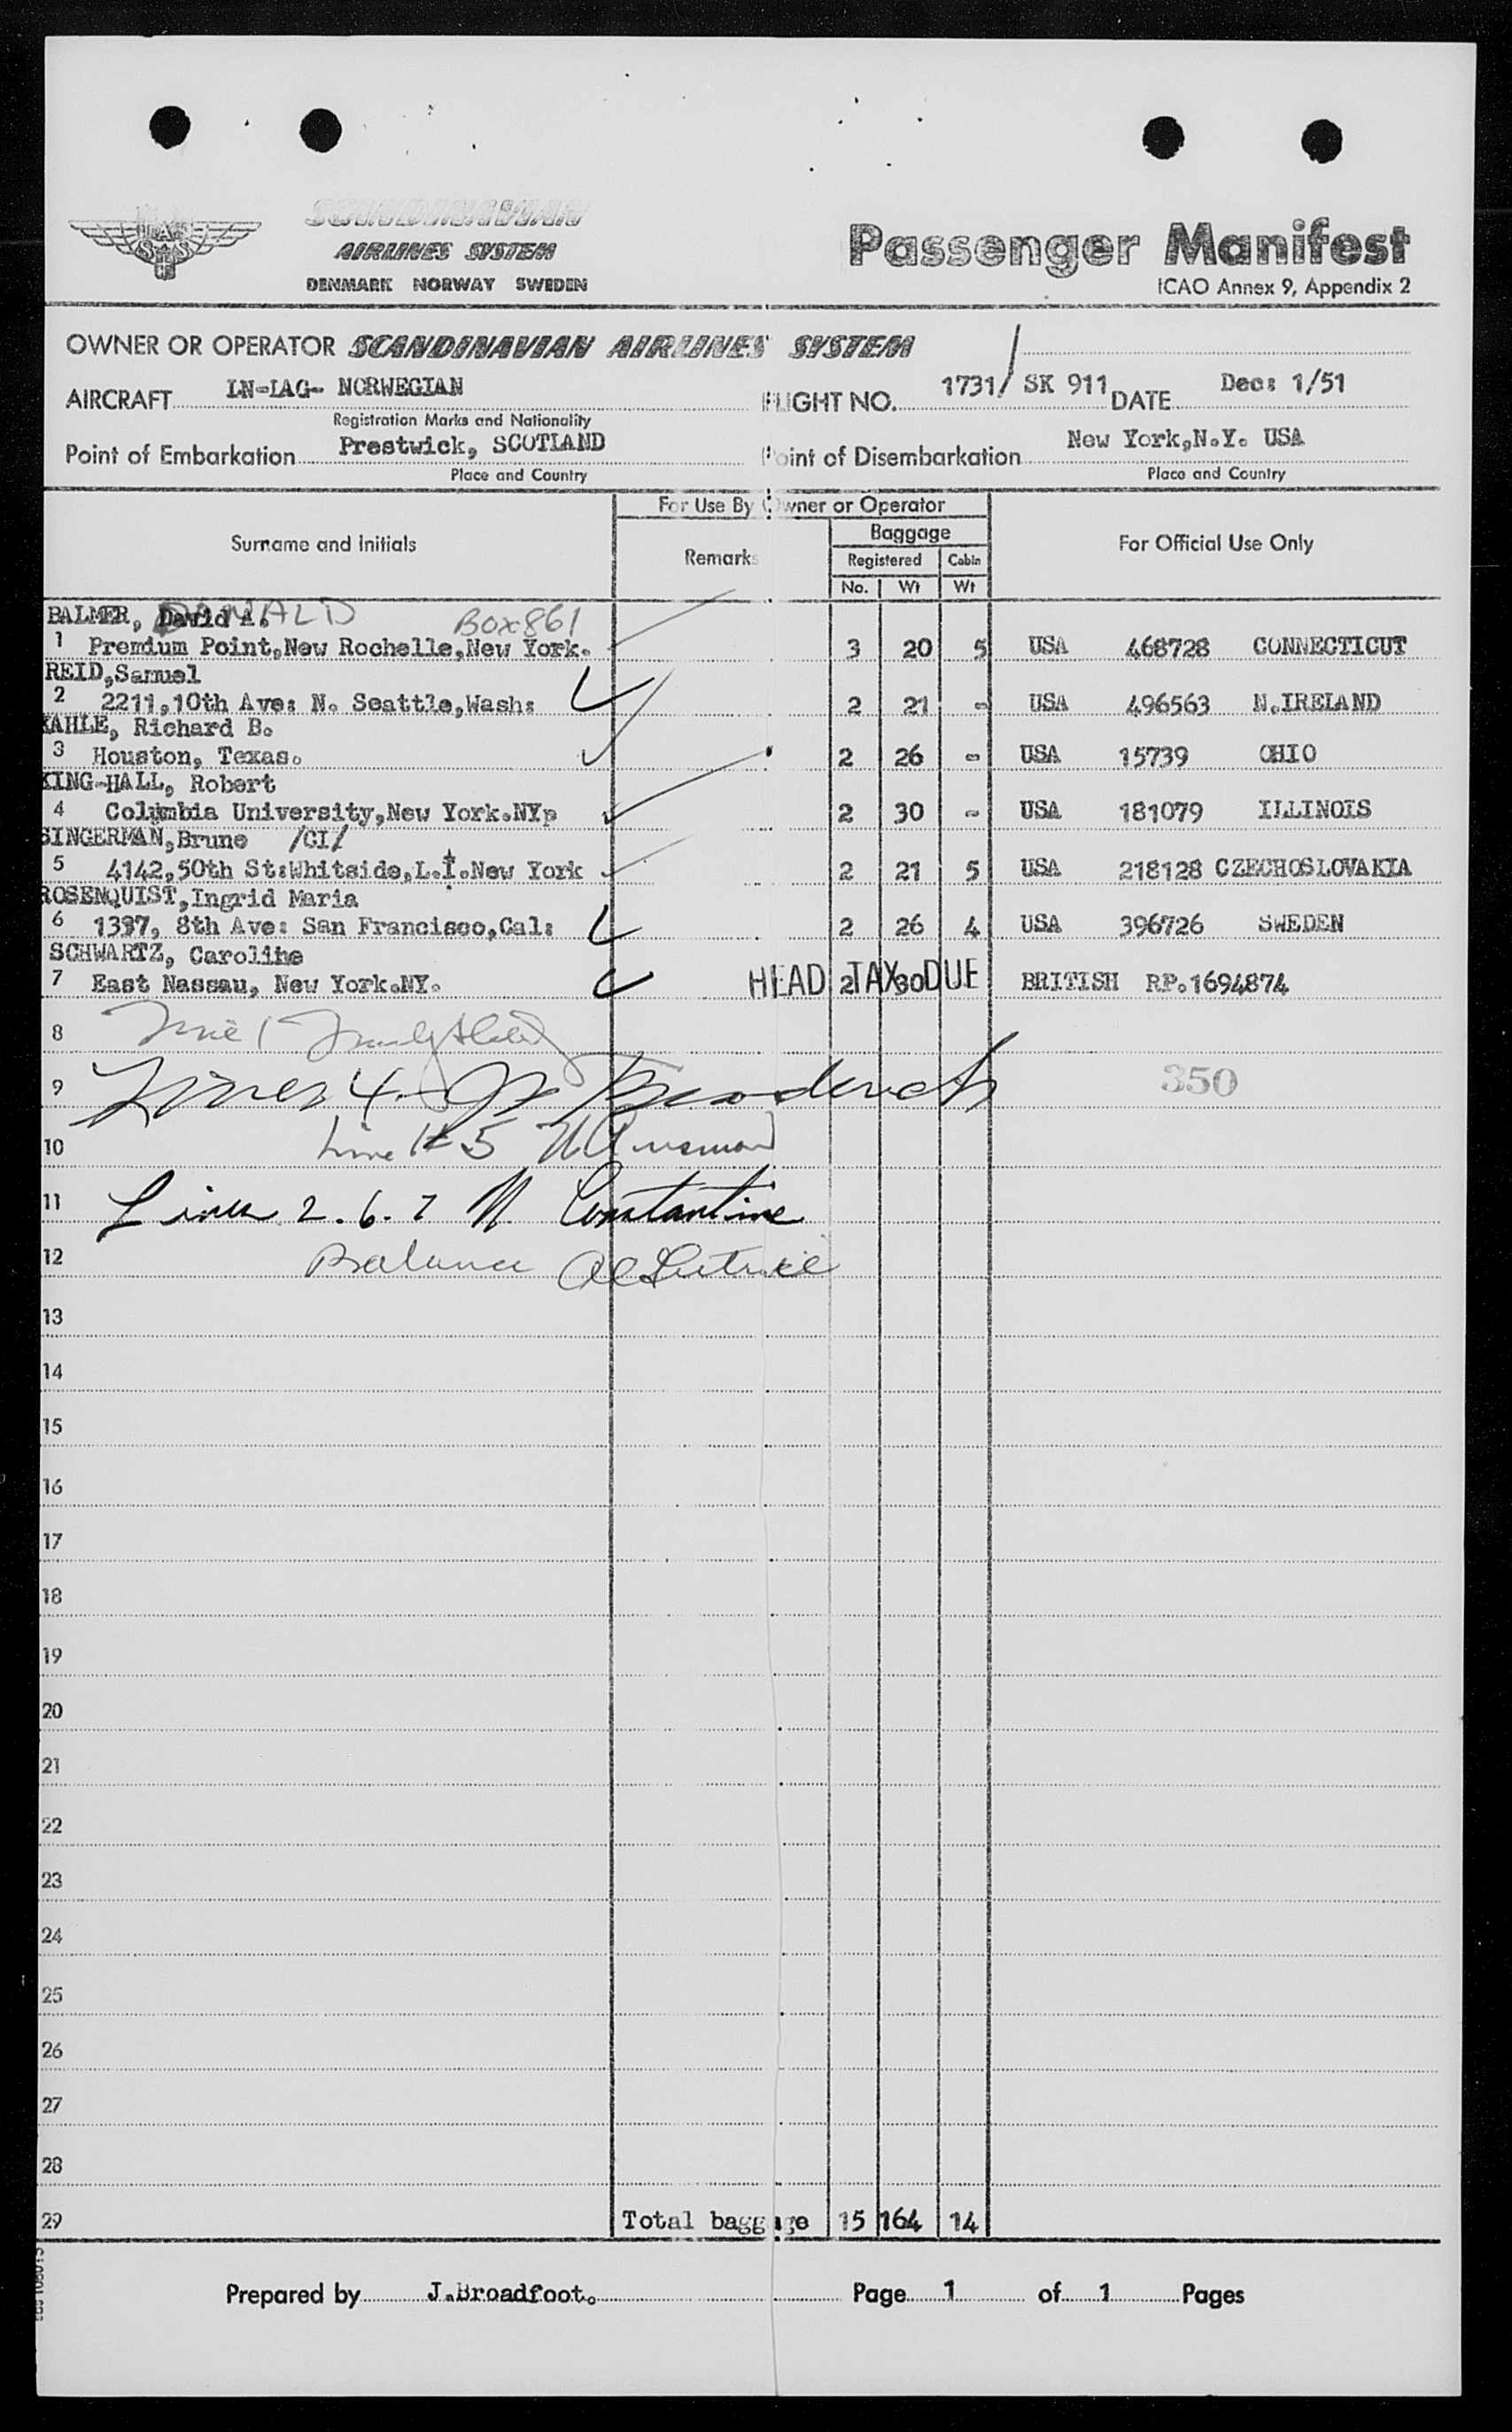 SAS
SCANDINAVIAN
AIRLINES SYSTEM
DENMARK NORWAY SWEDEN
Passenger Manifest
ICAO Annex 9, Appendix 2
OWNER OR OPERATOR SCANDINAVIAN AIRLINES SYSTEM
AIRCRAFT LN-LAG- NORWEGIAN FLIGHT NO. 1731/ SK 911 DATE Dec: 1/51
Registration Marks and Nationality
Point of Embarkation Prestwick, SCOTLAND Point of Disembarkation New York,N.Y. USA
Place and Country Place and Country
For Use By Owner or Operator
Surname and Initials Remarks Baggage For Official Use Only
Registered Cabin
No. Wt Wt
BALMER, David A. DONALD Box 861
1 Premium Point,New Rochelle,New York. 3 20 5 USA 468728 CONNECTICUT
REID,Samuel
2 2211,10th Ave: N. Seattle,Wash: 2 21 - USA 496563 N.IRELAND
KAHLE, Richard B.
3 Houston, Texas. 2 26 - USA 15739 OHIO
KING-HALL, Robert
4 Columbia University,New York.NYp 2 30 - USA 181079 ILLINOIS
SINGERMAN,Brune /CI/
5 4142,50th St:Whitside,L.I.New York 2 21 5 USA 218128 CZECHOSLOVAKIA
ROSENQUIST,Ingrid Maria
6 1397, 8th Ave: San Francisco,Cal: 2 26 4 USA 396726 SWEDEN
SCHWARTZ, Caroline
7 East Nassau, New York.NY. HEAD TAX DUE 2 30 BRITISH RP.1694874
8 Line 1
9 Lines 4 350
10 Line # 5
11 Lines 2. 6. 7 N Constantine
12 Balance
13
14
15
16
17
18
19
20
21
22
23
24
25
26
27
28
29 Total baggage 15 164 14
Prepared by J.Broadfoot. Page 1 of 1 Pages